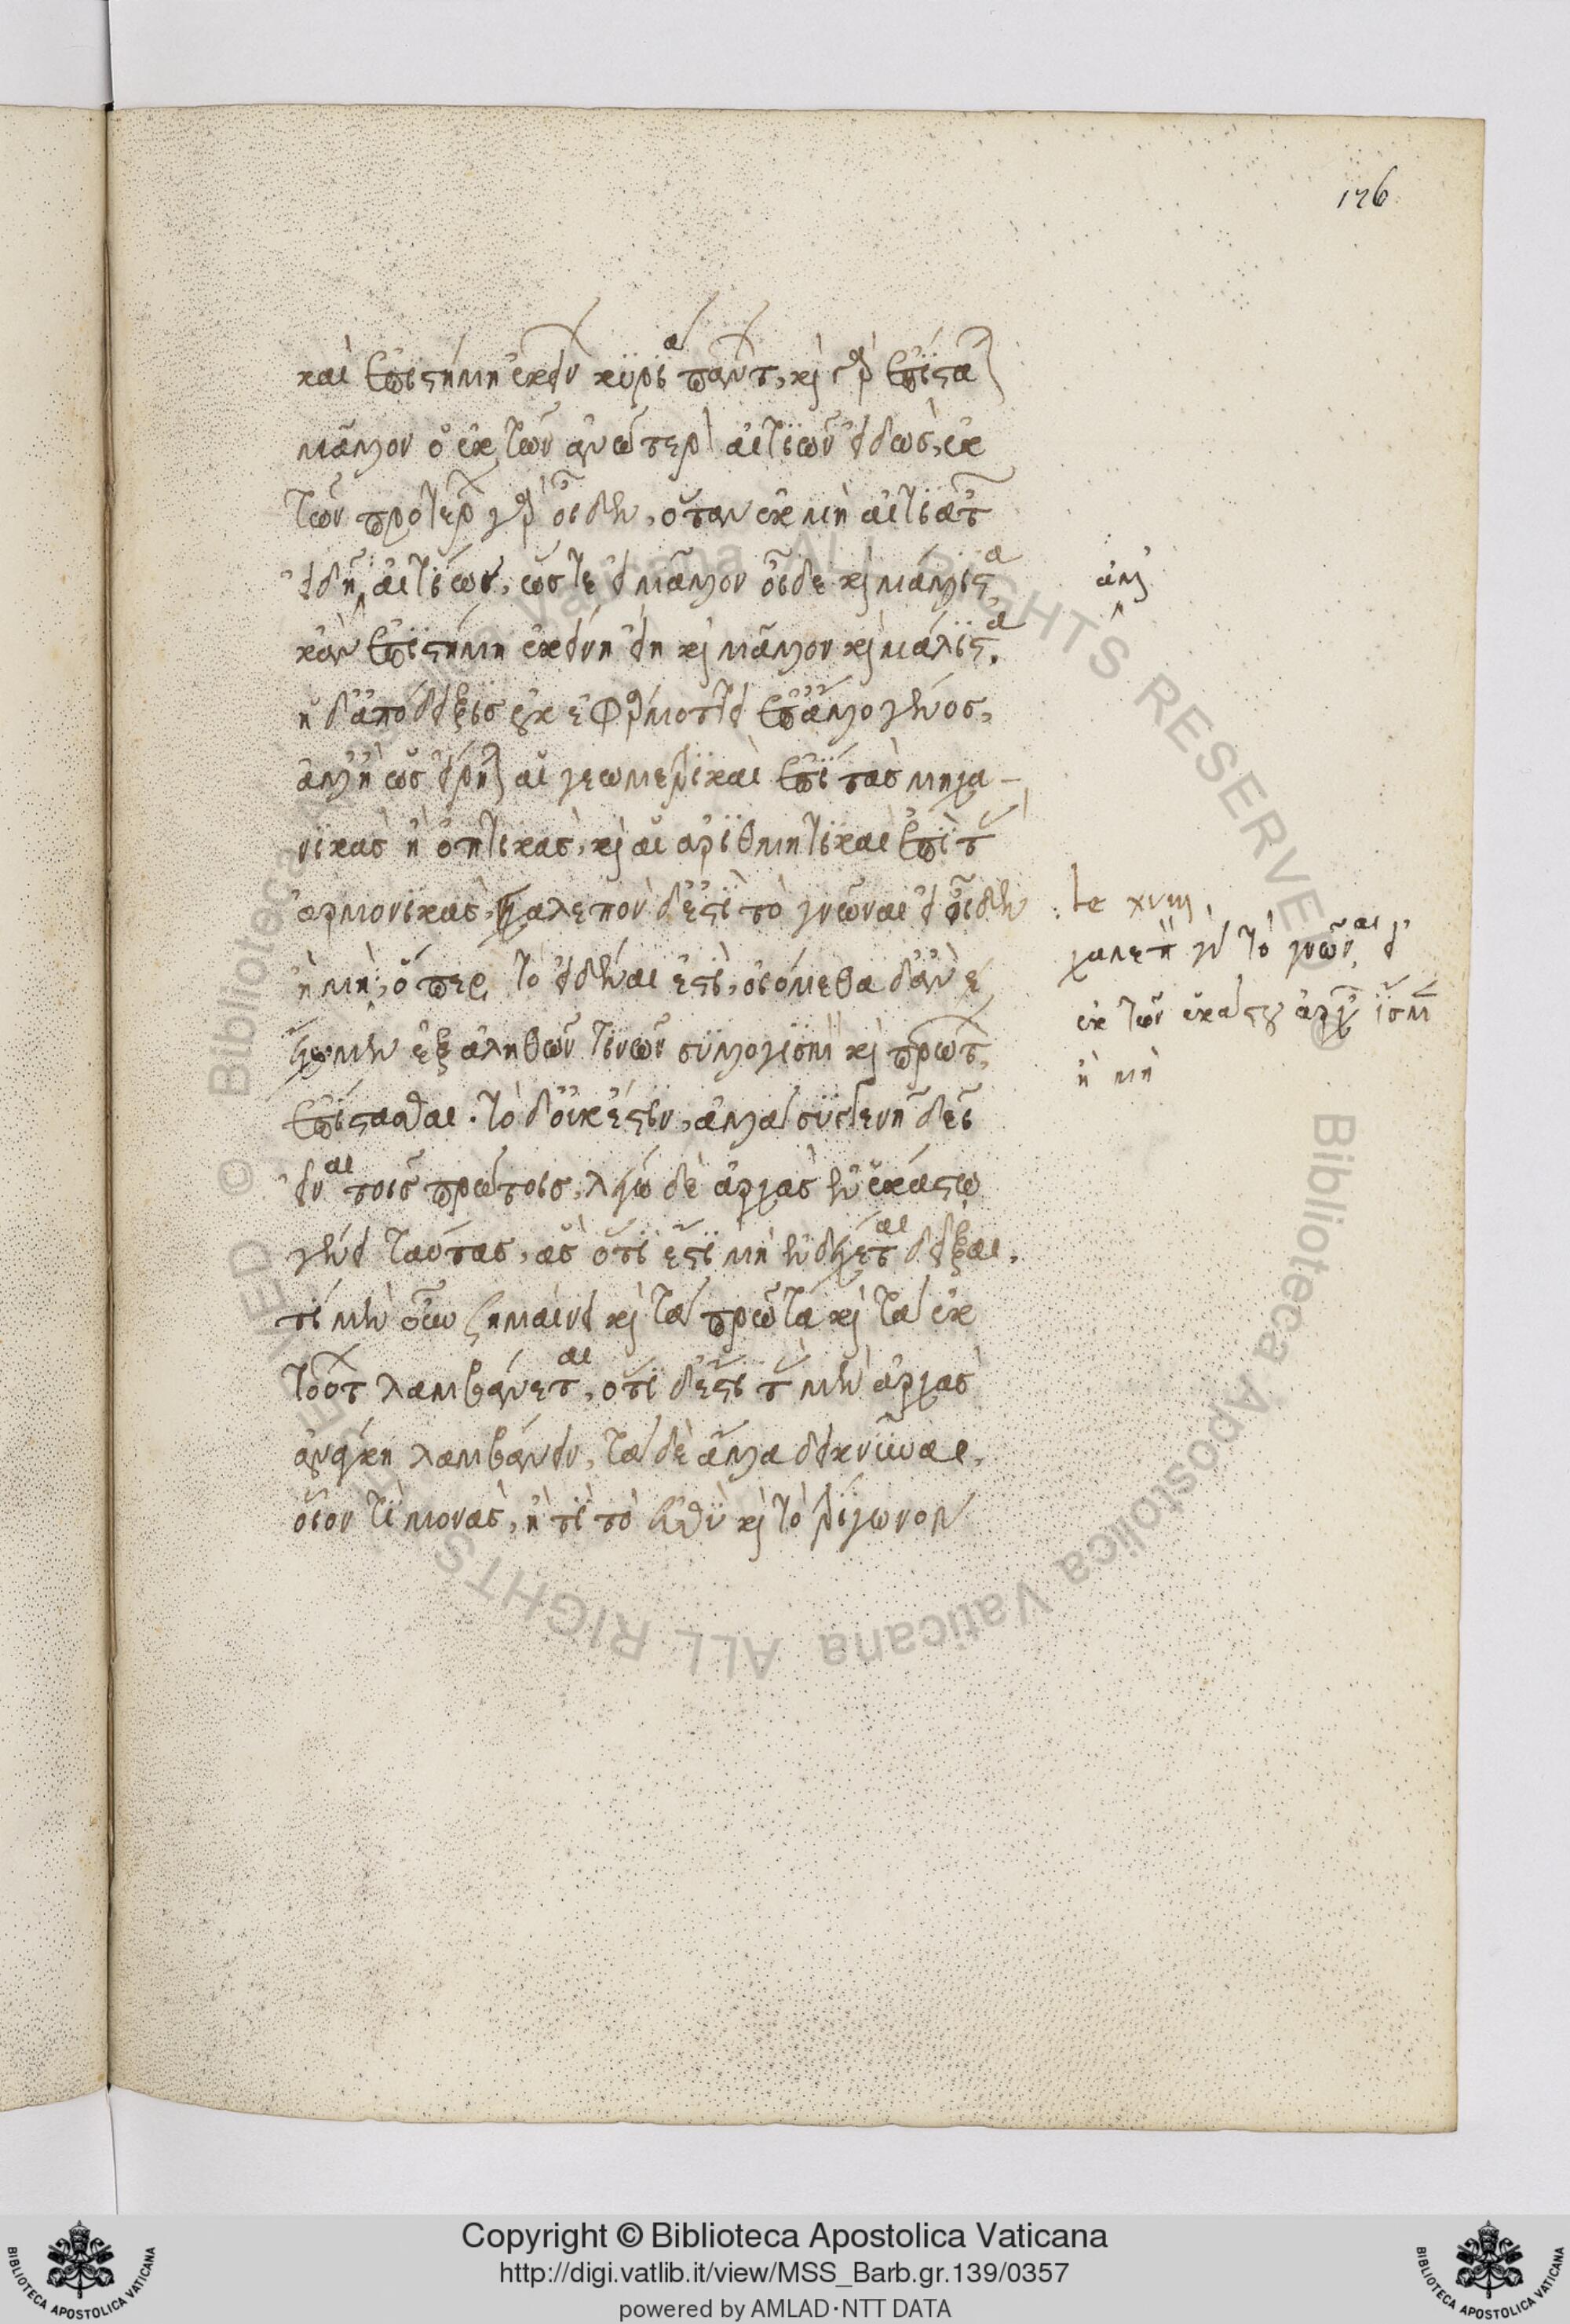 176
καὶ ἐπιστήμη ἐκείνων κυρία πάντων, καὶ γὰρ ἐπίσταται
μᾶλλον ὁ ἐκ τῶν ἀνώτερον αἰτίων εἰδώς, ἐκ
τῶν προτέρων γὰρ οἶδεν, ὅταν ἐκ μὴ αἰτιατῶν
εἰδῇ αἰτίων, ὥστε εἰ μᾶλλον οἶδε καὶ μάλιστα,
κἂν ἐπιστήμη ἐκείνη εἴη καὶ μᾶλλον καὶ μάλιστα.
ἡ δ' ἀπόδειξις οὐκ ἐφαρμόττει ἐπ' ἄλλο γένος,
ἀλλ' ἢ ὡς εἴρηται αἱ γεωμετρικαὶ ἐπὶ τὰς μηχα-
νικὰς ἢ ὀπτικὰς, καὶ αἱ ἀριθμητικαὶ ἐπὶ τὰς
ἁρμονικάς. χαλεπὸν δ' ἐστὶ τὸ γνῶναι εἰ οἶδεν
ἢ μή, ὅπερ τὸ εἰδέναι ἐστὶ, οἰόμεθα δ' ἂν ἔ
χωμεν ἐξ ἀληθῶν τινῶν συλλογισμὸν καὶ πρώτων,
ἐπίστασθαι. τὸ δ' οὐκ ἔστιν, ἀλλὰ συγγενῆ δεῖ
εἶναι τοῖς πρώτοις. λέγω δὲ ἀρχὰς ἐν ἑκάστῳ
γένει ταύτας, ἃς ὅτι ἔστι μὴ ἐνδέχεται δεῖξαι.
τί μὲν οὖν σημαίνει καὶ τὰ πρῶτα καὶ τὰ ἐκ
τούτων λαμβάνεται, ὅτι δ' ἐστὶ τὰς μὲν ἀρχὰς
ἀνάγκη λαμβάνειν, τὰ δὲ ἄλλα δεικνύναι,
οἷον τί μονὰς, ἢ τί τὸ εὐθὺ καὶ τὸ τρίγωνον
te xviii.
χαλεπὸν γὰρ τὸ γνῶναι εἰ
ἐκ τῶν ἑκάστου ἀρχῶν ἴσμεν
ἢ μὴ
Copyright © Biblioteca Apostolica Vaticana
http://digi.vatlib.it/view/MSS_Barb.gr.139/0357
powered by AMLAD·NTT DATA